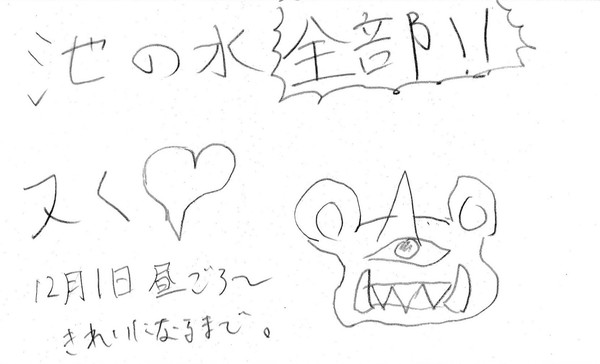 池の水全部!!
ヌく♡
12月1日 昼ごろ〜
きれいになるまで。